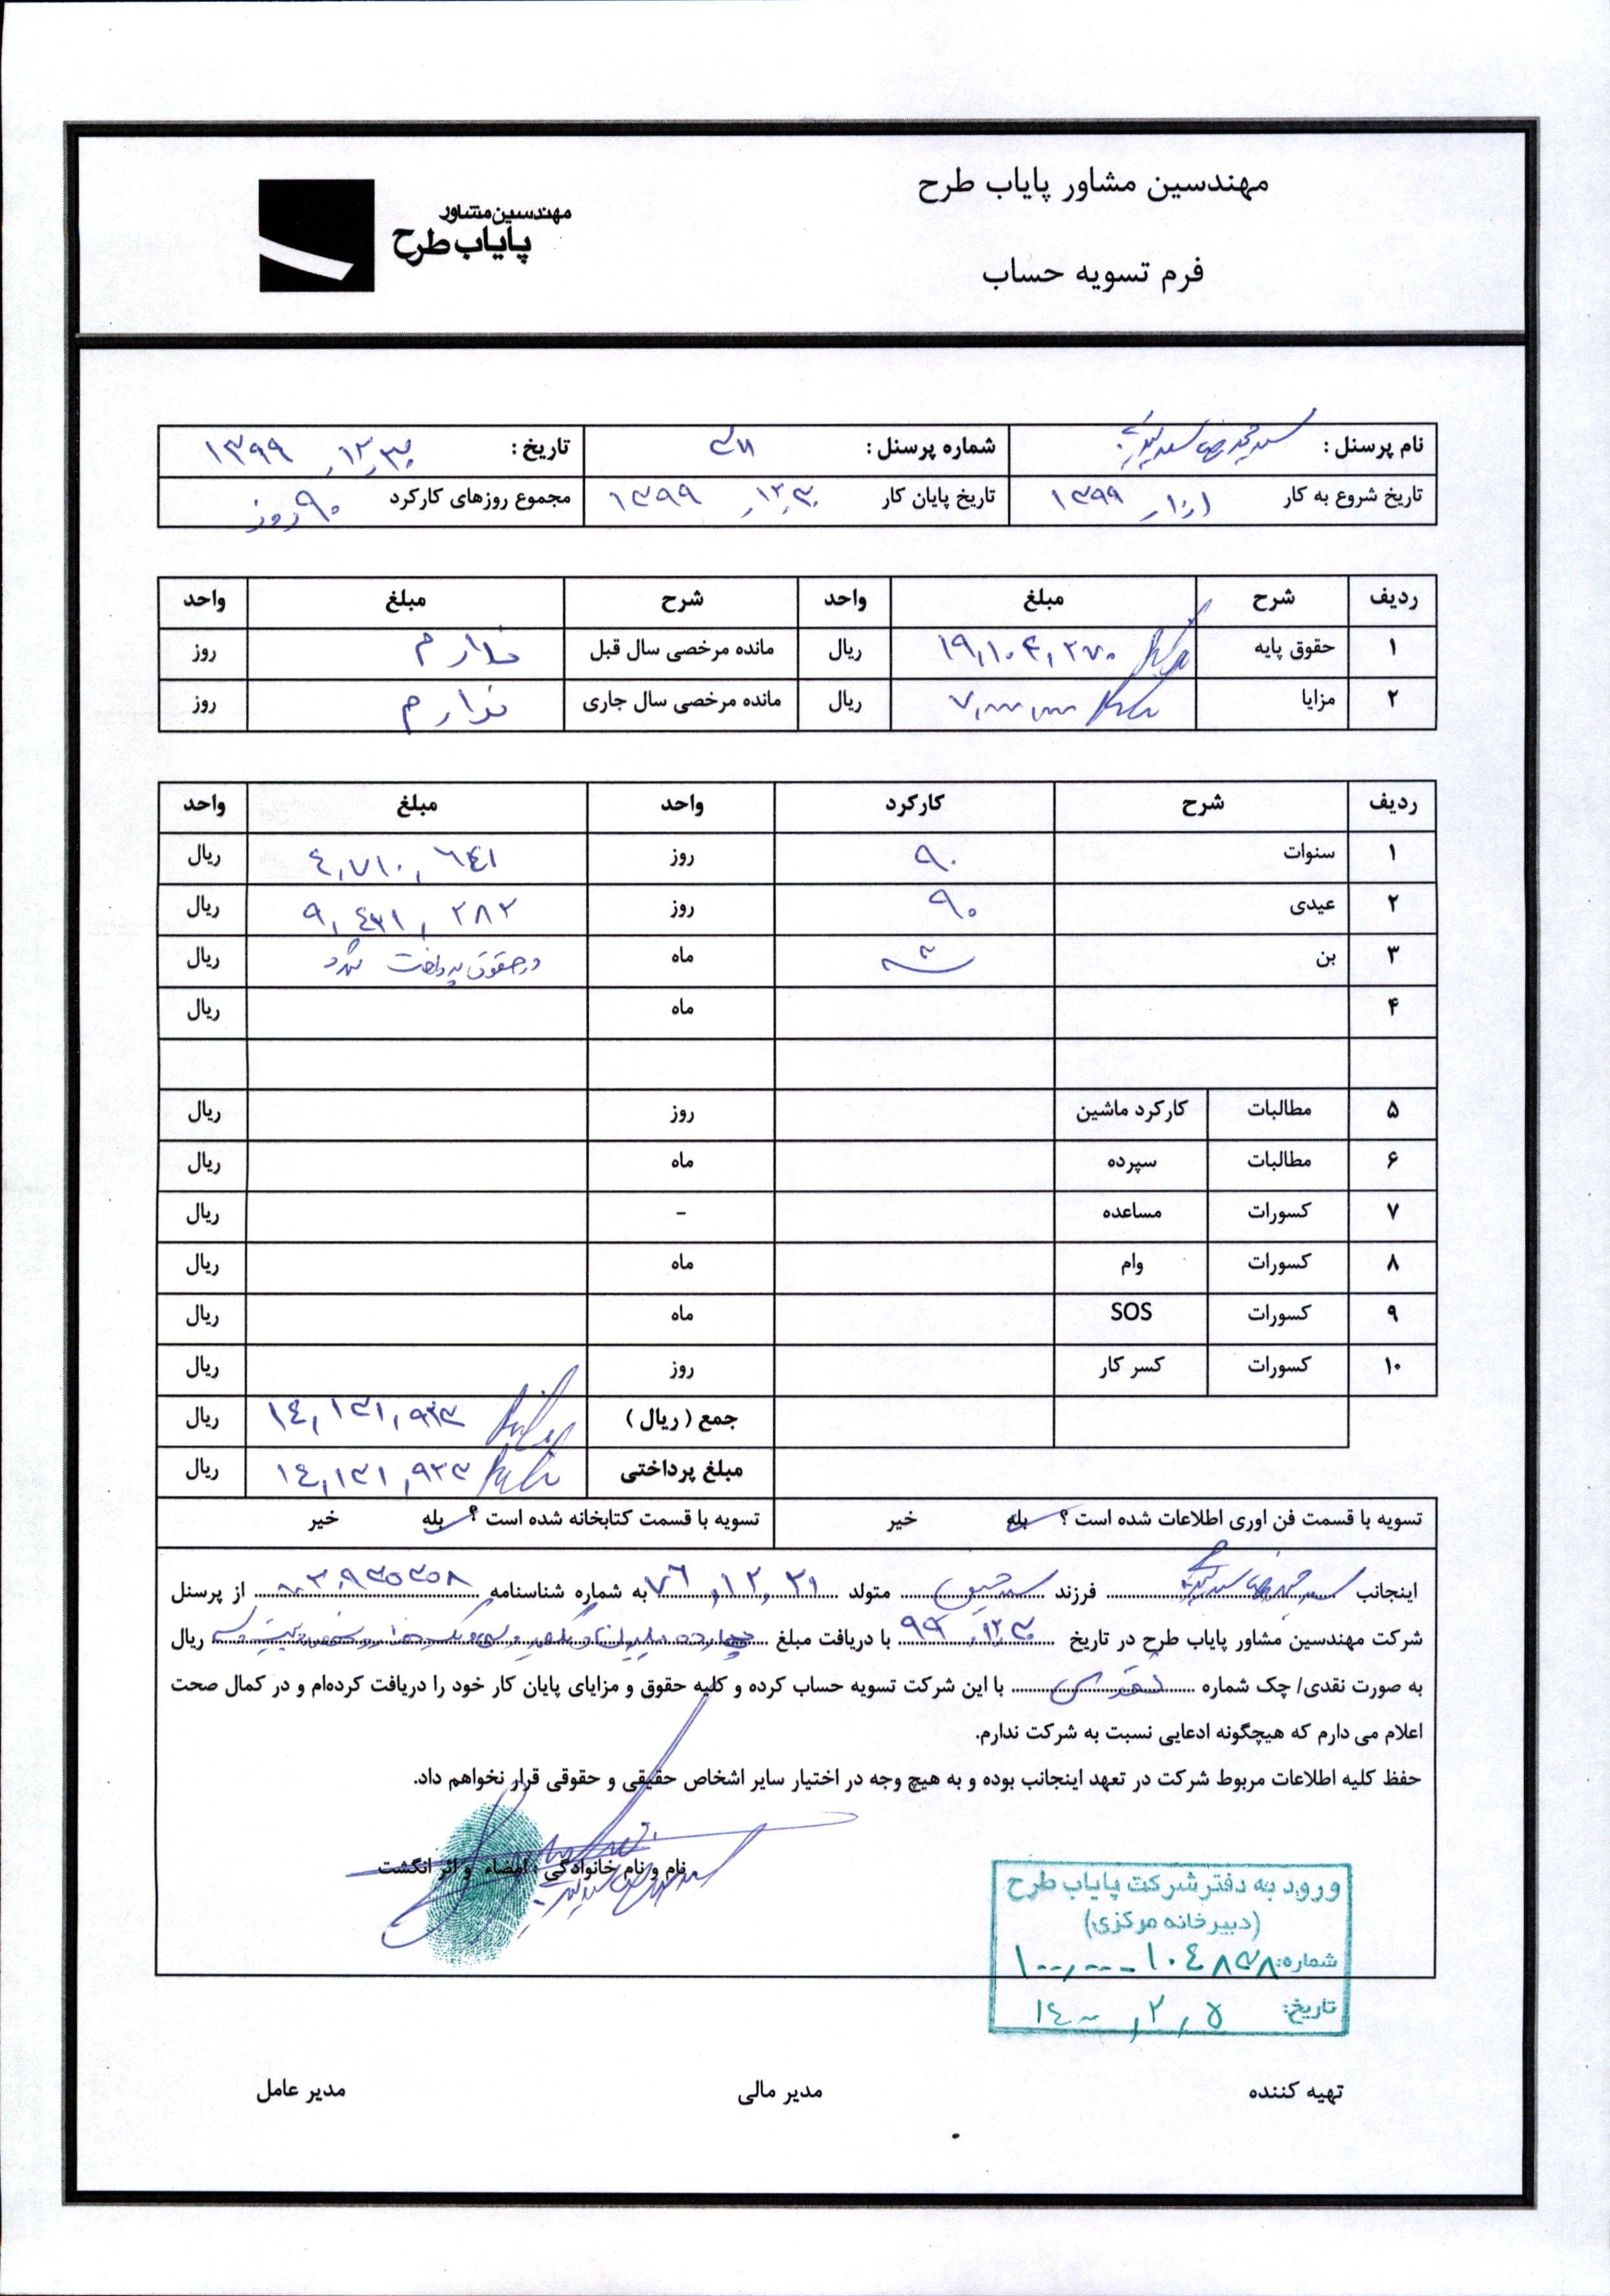 مهندسین مشاور پایاب طرح
مهندسین مشاور
پایاب طرح
فرم تسویه حساب
نام پرسنل : شماره پرسنل : تاریخ : ۱۳۹۹٫۱۲٫۳۰
تاریخ شروع به کار ۱۳۹۹ تاریخ پایان کار ۱۳۹۹٫۱۲٫۳۰ مجموع روزهای کارکرد ۹۰ روز
ردیف شرح مبلغ واحد شرح مبلغ واحد
۱ حقوق پایه ۱۹,۱۰۴,۲۷۰ ریال مانده مرخصی سال قبل ندارم روز
۲ مزایا ۷,۰۰۰,۰۰۰ ریال مانده مرخصی سال جاری ندارم روز
ردیف شرح کارکرد واحد مبلغ واحد
۱ سنوات ۹۰ روز ۴,۷۱۰,۶۴۱ ریال
۲ عیدی ۹۰ روز ۹,۴۲۱,۲۸۲ ریال
۳ بن ماه در حقوق پرداخت گردد ریال
۴ ماه ریال
۵ مطالبات کارکرد ماشین روز ریال
۶ مطالبات سپرده ماه ریال
۷ کسورات مساعده - ریال
۸ کسورات وام ماه ریال
۹ کسورات SOS ماه ریال
۱۰ کسورات کسر کار روز ریال
جمع ( ریال ) ۱۴,۱۳۱,۹۲۳ ریال
مبلغ پرداختی ۱۴,۱۳۱,۹۲۳ ریال
تسویه با قسمت فن اوری اطلاعات شده است ؟ بله خیر تسویه با قسمت کتابخانه شده است ؟ بله خیر
اینجانب فرزند سید حسین متولد ۷۶٫۱۲٫۲۱ به شماره شناسنامه از پرسنل
شرکت مهندسین مشاور پایاب طرح در تاریخ ۹۹٫۱۲٫۳۰ با دریافت مبلغ چهارده میلیون و یکصد و سی و یک هزار و نهصد و بیست و سه ریال
به صورت نقدی/ چک شماره نقدی با این شرکت تسویه حساب کرده و کلیه حقوق و مزایای پایان کار خود را دریافت کرده‌ام و در کمال صحت
اعلام می دارم که هیچگونه ادعایی نسبت به شرکت ندارم.
حفظ کلیه اطلاعات مربوط شرکت در تعهد اینجانب بوده و به هیچ وجه در اختیار سایر اشخاص حقیقی و حقوقی قرار نخواهم داد.
نام و نام خانوادگی : امضاء و اثر انگشت
ورود به دفتر شرکت پایاب طرح
(دبیرخانه مرکزی)
شماره:
تاریخ: ۱۴۰۰٫۲٫۵
تهیه کننده مدیر مالی مدیر عامل